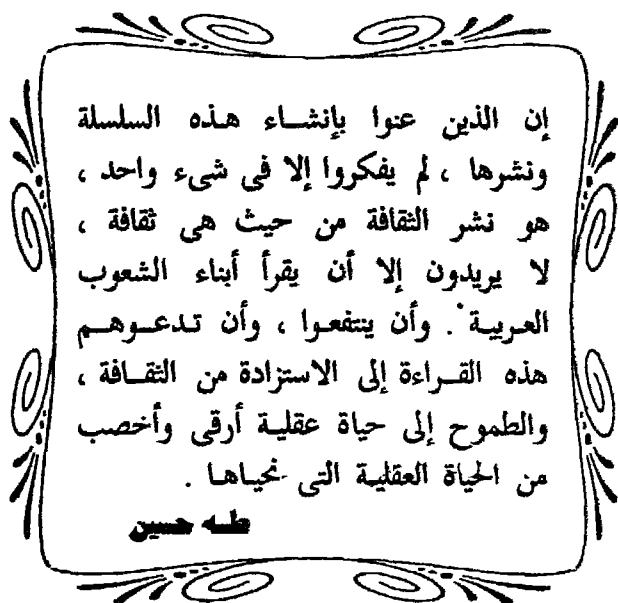 إن الذين عنوا بإنشاء هذه السلسلة
ونشرها ، لم يفكروا إلا فى شىء واحد ،
هو نشر الثقافة من حيث هى ثقافة ،
لا يريدون إلا أن يقرأ أبناء الشعوب
العربية . وأن ينتفعوا ، وأن تدعوهم
هذه القراءة إلى الاستزادة من الثقافة ،
والطموح إلى حياة عقلية أرقى وأخصب
من الحياة العقلية التى نحياها .
طه حسين